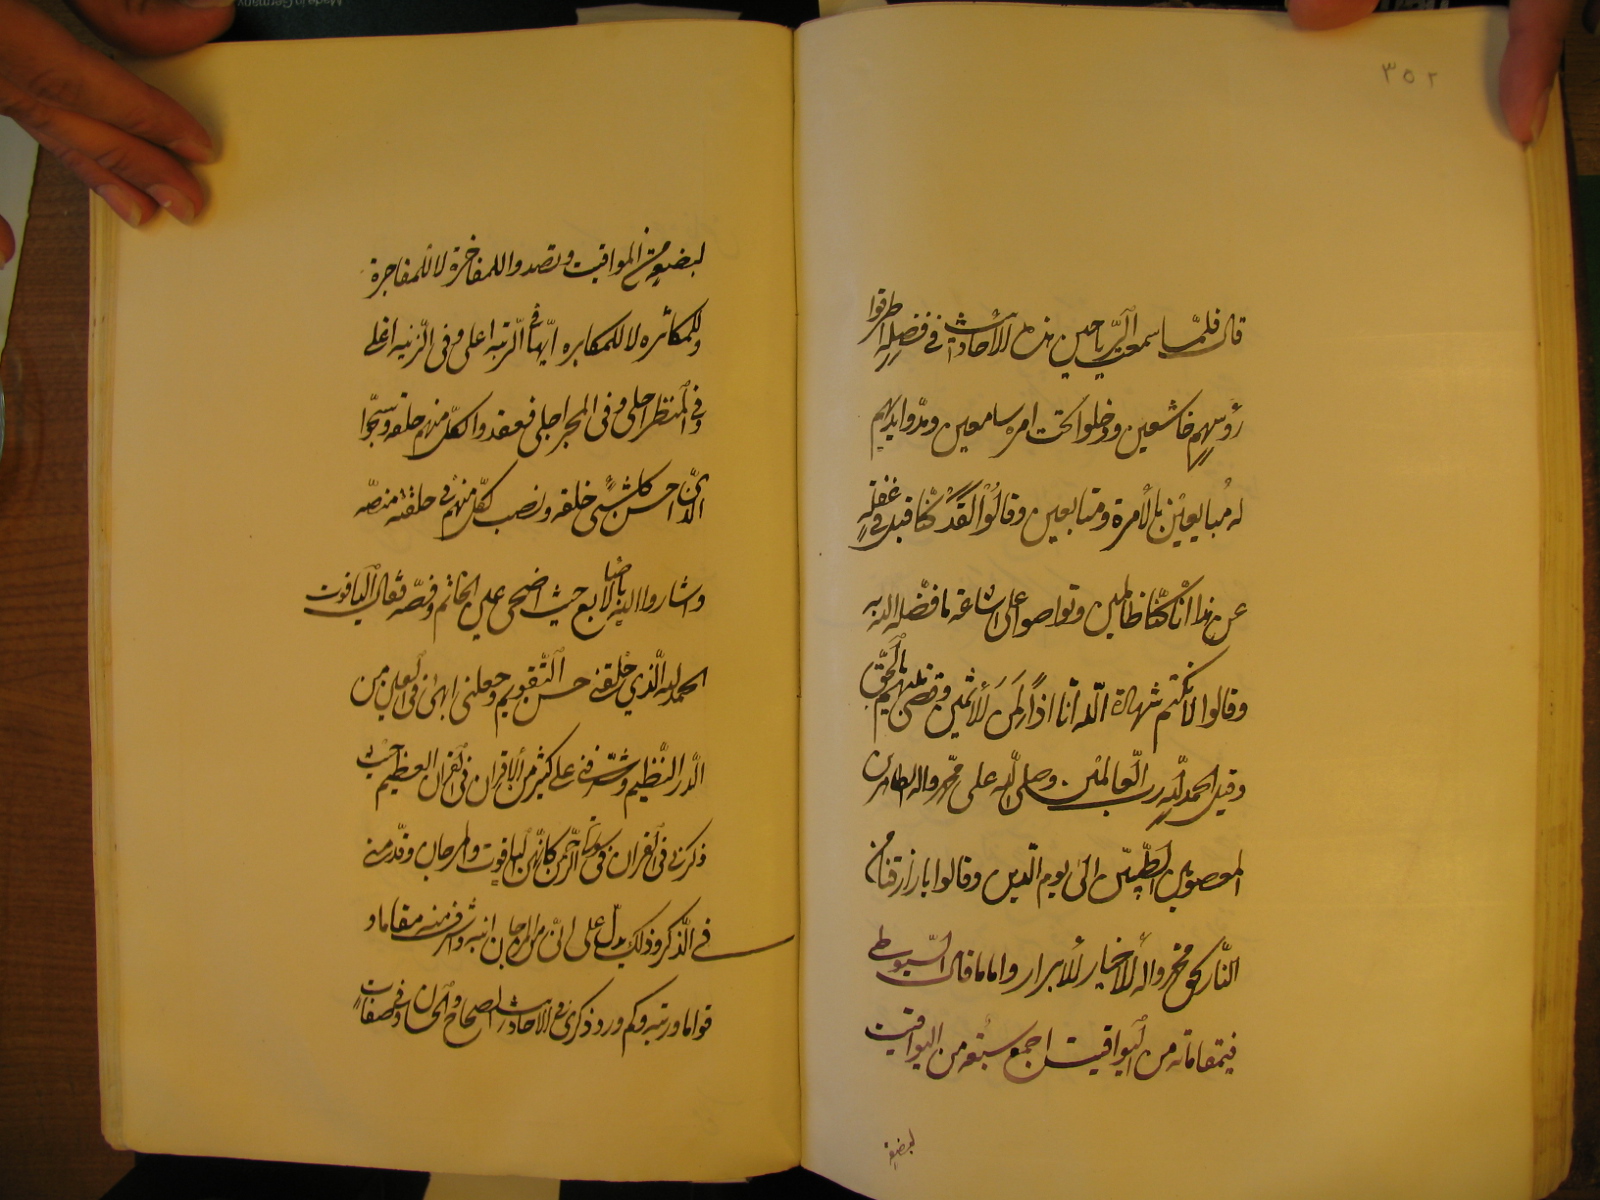 ٣٥٢
قال فلمّا سمعت الرّياحين هذه الأحاديث في فضله اطرقوا
رؤسهم خاشعين ودخلوا تحت امره سامعين ومدّوا ايديهم
له مبايعين بالأمرة ومتابعين وقالوا لقد كنّا قبل في غفلة
عن هذا انّا كنّا ظالمين وتواصوا على اشاعة ما فضّله الله به
وقالوا لا نكتم شهادة الله انّا اذا لمن الأثمين وقضى بينهم بالحقّ
وقيل الحمد لله ربّ العالمين وصلى الله على محمّد واله الطاهرين
المعصومين الطّيبين الى يوم الدّين وقالوا يا رازقنا من
النّار بحق محمّد واله الأخيار الأبرار واما ما قال السّيوطي
في مقاماته من اليواقيت اجمع سبعه من اليواقيت
لبضعة
لبضعة من المواقيت وتصدوا للمفاخرة لا للمفاجرة
وللمكاثره لا للمكابره ايّها في الرّتبة اعلى وفى الزّينه اغلى
وفي المنظر احلى وفى المخبر اجلى فعقدوا لكلّ منهم حلقه وسبّحوا
الذى احسن كلّ شيئى خلقه ونصب لكلّ منهم في حلقته منصّه
واشاروا اليه بالاصابع حيث اضحى على الخاتم وفصّه فقال الياقوت
الحمد لله الّذي خلقني في احسن التّقويم وجعلنى ابهىٰ في العين من
الدّر النّظيم وشرّفنى على كثير من الاقران فى القران العظيم حيث
ذكرنى فى القران فى سورة الرّحمن كانّهن الياقوت والمرجان وقدّمنى
في الذّكر وذلك يدلّ على انّى من المرجان انبه واشرف منه مقاما و
قواما ورتبه وكم ورد ذكرى في الاحاديث الصحاح والحسان وفي صفات